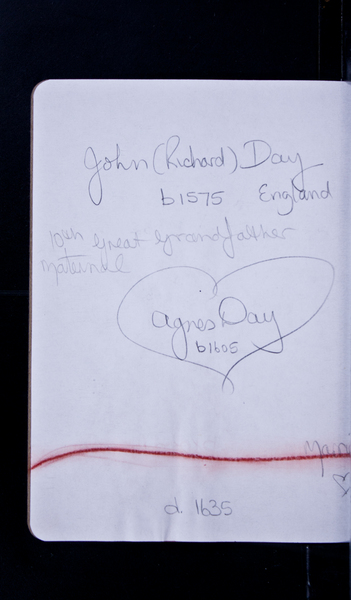 John (Richard) Day
b1575 England
10th great grandfather
maternal
Agnes Day
b1605
d. 1635